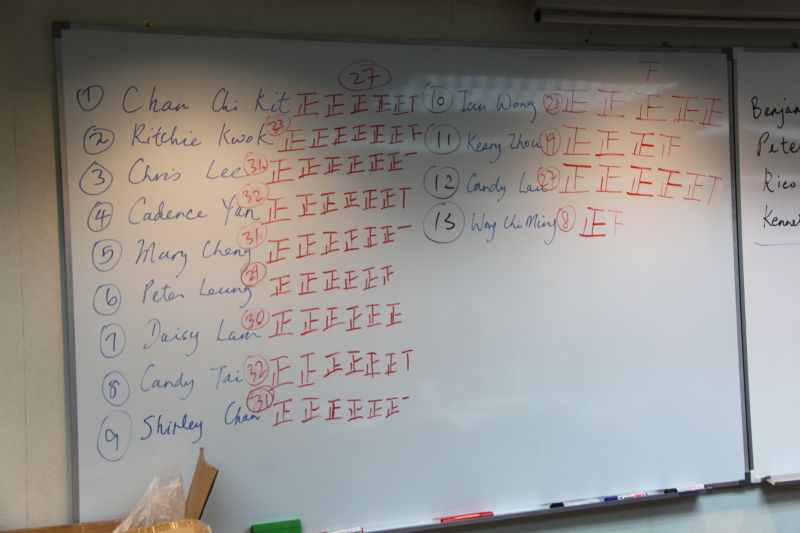 27
① Chan Chi Kit 正正正正正T
② Ritchie Kwok 33 正正正正正正下
③ Chris Lee 31 正正正正正正一
④ Cadence Yan 32 正正正正正正T
⑤ Mary Cheng 31 正正正正正正一
⑥ Peter Leung 29 正正正正正
⑦ Daisy Lam 30 正正正正正正
⑧ Candy Tai 32 正正正正正正T
⑨ Shirley Chan 31 正正正正正正一
下
⑩ Ian Wong 正正正正正
⑪ Keary Zhou 19 正正正
⑫ Candy Lau 27 正正正正正T
⑬ Wong Chi Ming 8 正下
Benjam
Pete
Rico
Kenne